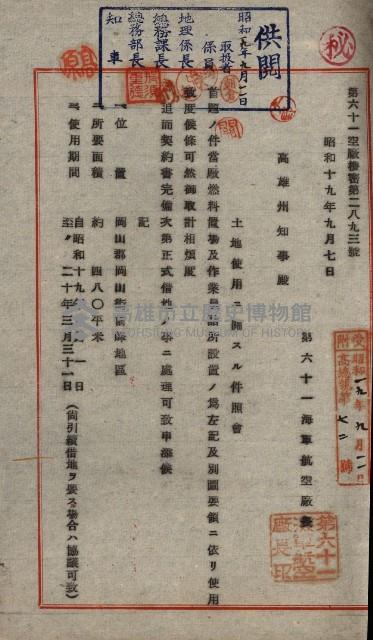 秘
供閲
昭和十九年九月一一日
取扱者
係員
地理係長
總務課長
總務部長
知事
第六十一空廠機密第二八九三號
昭和十九年九月七日
高雄州知事殿
第六十一海軍航空廠長
第六十一海軍航空廠長印
受附
昭和一九年九月一一日
土地使用ニ關スル件照會
首題ノ件當廠燃料置場及作業員詰所設置ノ爲左記及別圖要領ニ依リ使用
致度候條可然御取計相煩度
追而契約書完備次第正式借地ノ事ニ處理可致申添候
記
一、位置
二、所要面積 約 四八〇平米
三、使用期間
自昭和十九年
至〃二十年三月三十一日
(尚引續借地ヲ要スル場合ハ協議可致)
高雄市立歷史博物館
KAOHSIUNG MUSEUM OF HISTORY